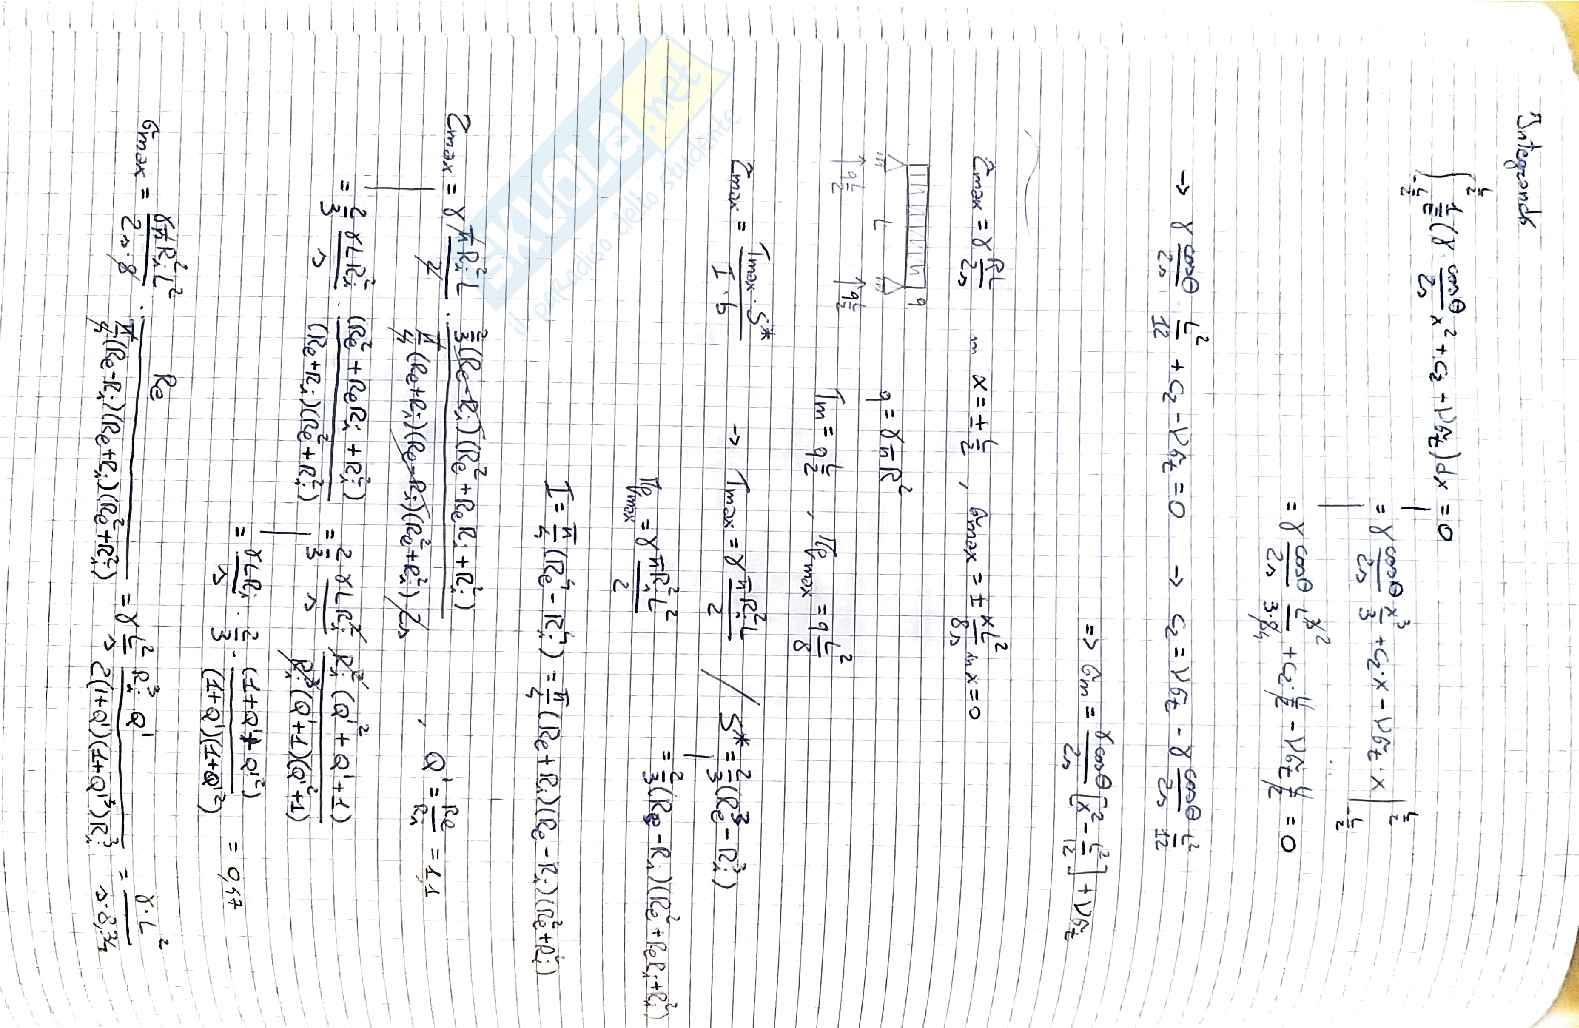 Integrando
∫_{-L/2}^{L/2} 1/E (γ · cosθ/2s x² + C₂ - νσz) dx = 0
= γ cosθ/2s x³/3 + C₂·x - νσz·x |_{-L/2}^{L/2}
= γ cosθ/2s L³/3·8/4 + C₂·L/2 - νσz L/2 = 0
→ γ cosθ/2s · L²/12 + C₂ - νσz = 0 → C₂ = νσz - γ cosθ/2s L²/12
=> σm = γcosθ/2s [x² - L²/12] + νσz
τmax = γ RL/2s in x = ± L/2 , σmax = ± γL²/8s in x = 0
q
L
q L/2
q L/2
q = γπR²
Tm = q L/2 , Mmax = q L²/8
τmax = Tmax · S*/I · b → Tmax = γ πRi²L/2 / S* = 2/3 (Re³ - Ri³)
Mmax = γ πRi²L²/2
= 2/3 (Re - Ri)(Re² + ReRi + Ri²)
I = π/4 (Re⁴ - Ri⁴) = π/4 (Re + Ri)(Re - Ri)(Re² + Ri²)
τmax = γ πRi²L/2 · 2/3 (Re - Ri)(Re² + ReRi + Ri²) / π/4 (Re + Ri)(Re - Ri)(Re² + Ri²) 2s , Q' = Re/Ri = 1,1
= 2/3 γLRi²/s · (Re² + ReRi + Ri²)/(Re + Ri)(Re² + Ri²) = 2/3 γLRi²/s Ri²(Q'² + Q' + 1)/Ri³(Q' + 1)(Q'² + 1)
= γLRi/s · 2/3 · (1 + Q' + Q'²)/(1 + Q')(1 + Q'²) = 0,47
σmax = γπRi²L²/2s·8 · Re / π/4 (Re - Ri)(Re + Ri)(Re² + Ri²) = γ L²/s Ri³ Q'/2(1 + Q')(1 + Q'²)Ri³ = γ·L²/s·8,44